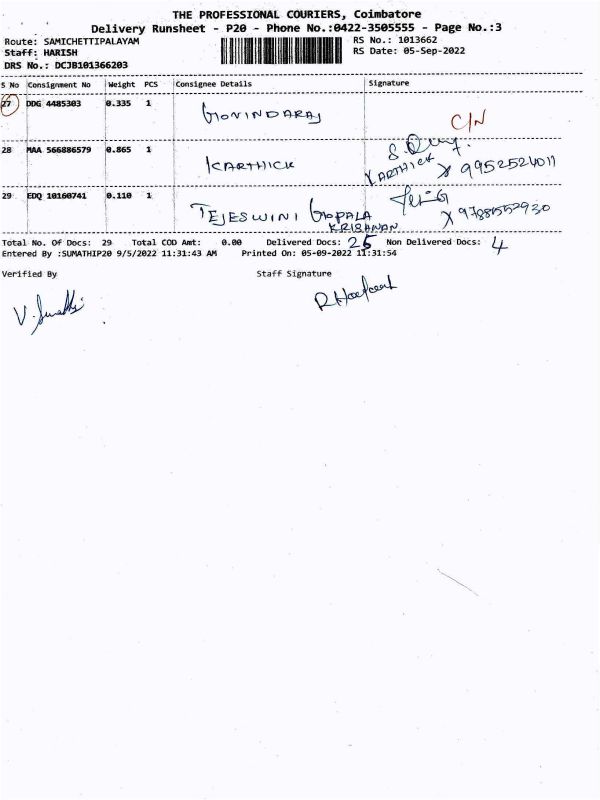 THE PROFESSIONAL COURIERS, Coimbatore
Delivery Runsheet - P20 - Phone No.:0422-3505555 - Page No.:3
Route: SAMICHETTIPALAYAM RS No.: 1013662
Staff: HARISH RS Date: 05-Sep-2022
DRS No.: DCJB101366203
S No Consignment No Weight PCS Consignee Details Signature
27 DDG 4485303 0.335 1 GOVINDARAJ C/N
28 MAA 566886579 0.865 1 KARTHICK KARTHICK 9952524011
29 EDQ 10160741 0.110 1 TEJESWINI GOPALA
KRISHNAN
Total No. Of Docs: 29 Total COD Amt: 0.00 Delivered Docs: 25 Non Delivered Docs: 4
Entered By :SUMATHIP20 9/5/2022 11:31:43 AM Printed On: 05-09-2022 11:31:54
Verified By Staff Signature